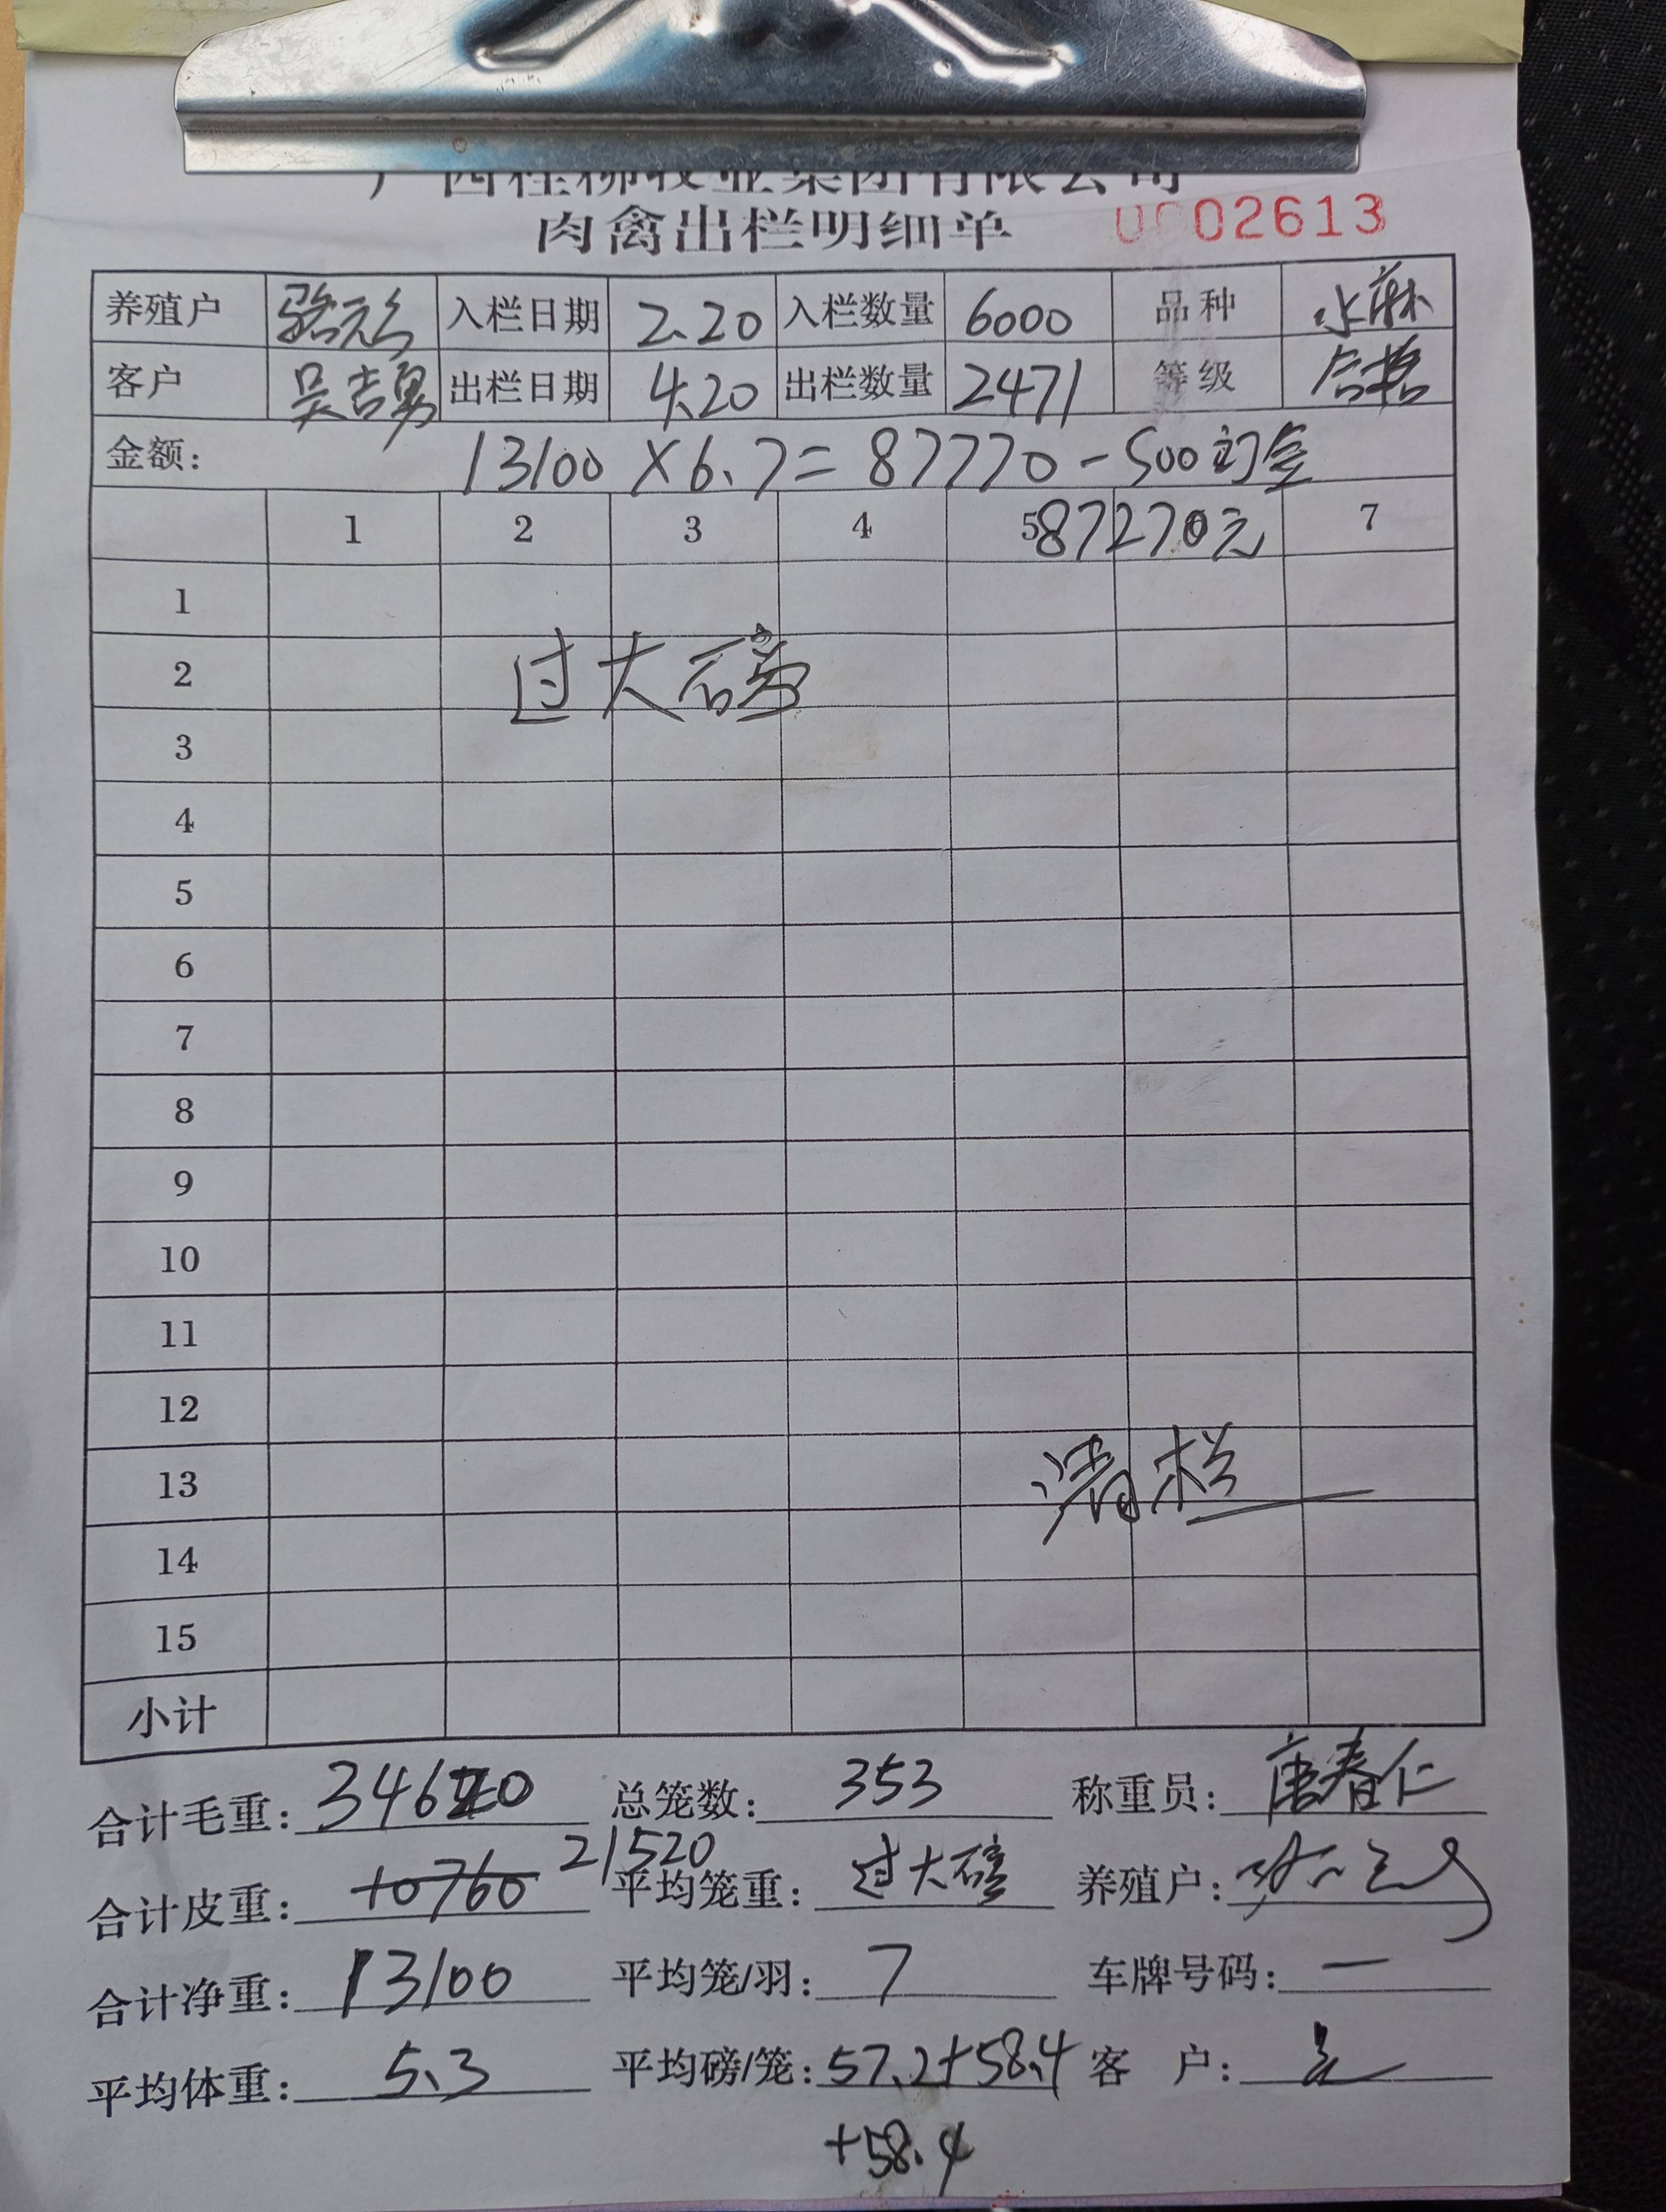 广西桂柳牧业集团有限公司
肉禽出栏明细单 0002613
养殖户 骆元 入栏日期 2.20 入栏数量 6000 品种 水麻
客户 吴吉勇 出栏日期 4.20 出栏数量 2471 等级 合格
金额: 13100×6.7=87770-500订金
1 2 3 4 5 87270元 7
1
2 过大磅
3
4
5
6
7
8
9
10
11
12
13 清栏
14
15
小计
合计毛重: 34620 总笼数: 353 称重员: 唐春仁
合计皮重: 10760 21520 平均笼重: 过大磅 养殖户:
合计净重: 13100 平均笼/羽: 7 车牌号码: 一
平均体重: 5.3 平均磅/笼: 57.2+58.4 客 户:
+58.4